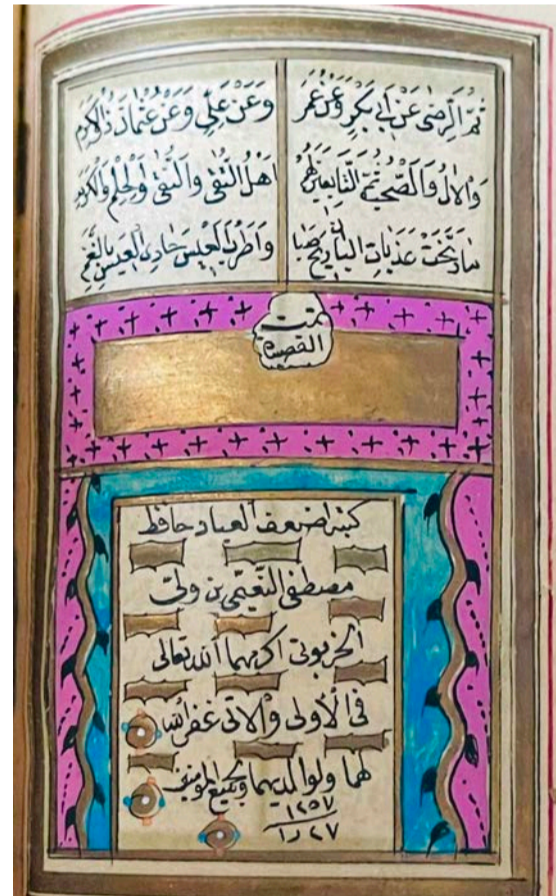 ثُمَّ الرِّضَى عَنْ اَبِى بَكْرٍ وَعَنْ عُمَرَ وَعَنْ عَلِىٍّ وَعَنْ عُثْمَانَ ذِى الْكَرَمِ
وَالْاٰلِ وَالصَّحْبِ ثُمَّ التَّابِعِينَ لَهُمْ اَهْلُ التُّقٰى وَالنُّقٰى وَالْحِلْمِ وَالْكَرَمِ
مَا رَنَّحَتْ عَذَبَاتِ الْبَانِ رِيحُ صَبَا وَاَطْرَبَ الْعِيسَ حَادِى الْعِيسِ بِالنَّغَمِ
تمت
القصيدة
كتبه اضعف العباد حافظ
مصطفى النعيمى بن ولى
الخربوتى اكرمهما الله تعالى
فى الاولى والاتى غفر الله
لهما ولوالديهما ولجميع المؤمنين
١٢٥٧